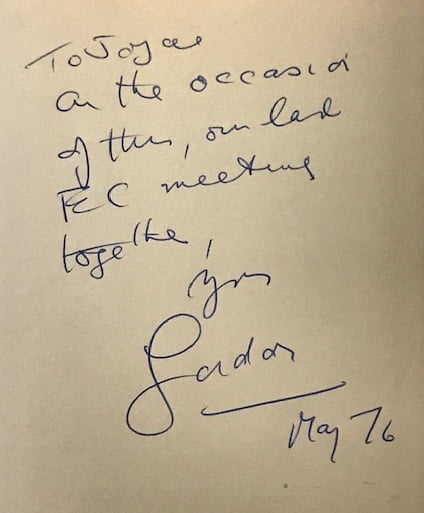 To Joyce
on the occasion
of this, our last
EC meeting
together,
Yrs
May 76